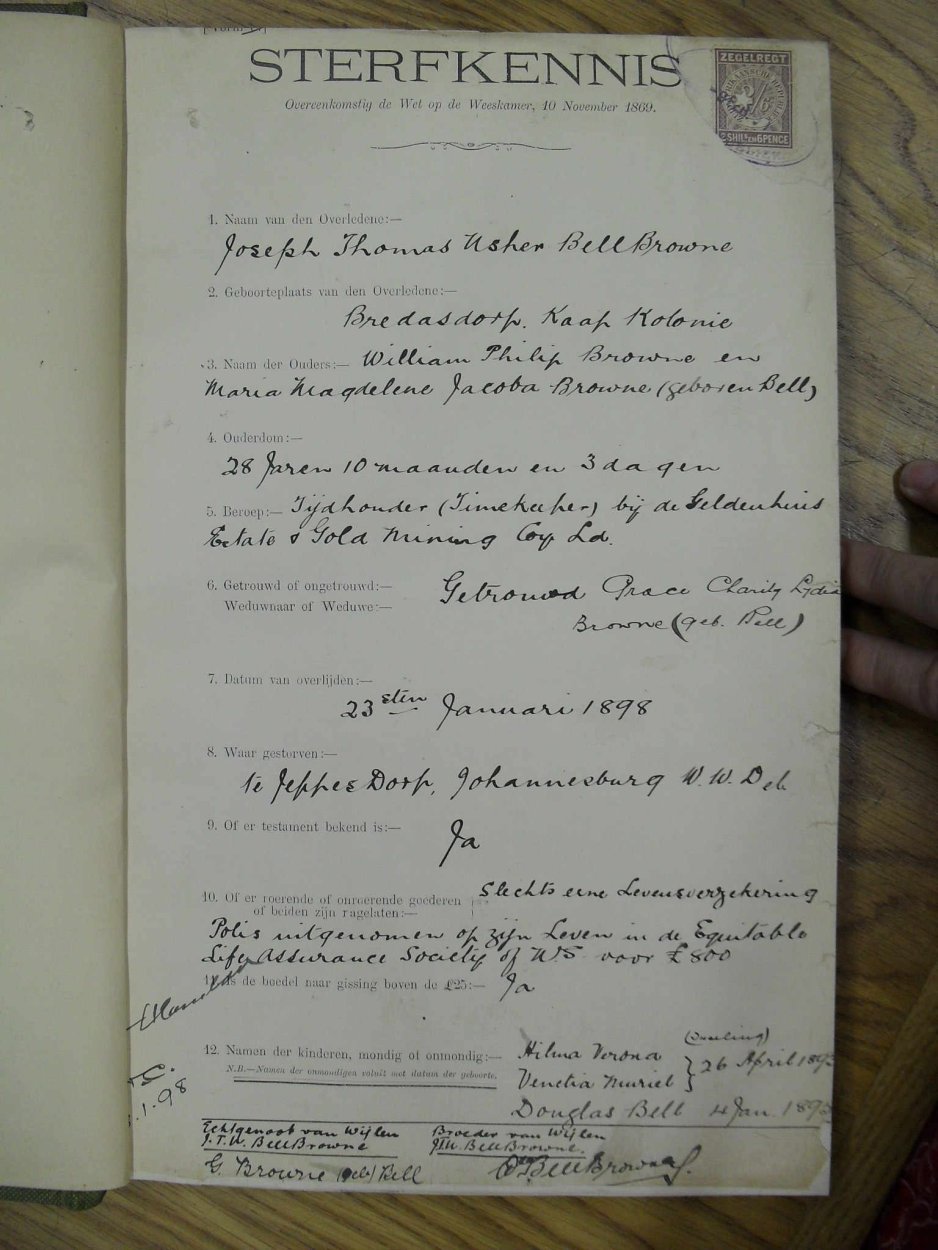 STERFKENNIS
Overeenkomstig de Wet op de Weeskamer, 10 November 1869.
ZEGELREGT
2 SHILS EN 6 PENCE
1. Naam van den Overledene:—
Joseph Thomas Usher Bell Browne
2. Geboorteplaats van den Overledene:—
Bredasdorp. Kaap Kolonie
3. Naam der Ouders:— William Philip Browne en
Maria Magdelene Jacoba Browne (geboren Bell)
4. Ouderdom:—
28 Jaren 10 maanden en 3 dagen
5. Beroep:— Tijdhouder (Timekeeper) bij de Geldenhuis
Estate & Gold Mining Coy Ld.
6. Getrouwd of ongetrouwd:— Getrouwd Grace Charity Lydia
Weduwnaar of Weduwe:— Browne (geb. Bell)
7. Datum van overlijden:—
23sten Januari 1898
8. Waar gestorven:—
te Jeppes Dorp, Johannesburg W.W.
9. Of er testament bekend is:— Ja
10. Of er roerende of onroerende goederen Slechts eene Levensverzekering
of beiden zijn nagelaten:—
Polis uitgenomen op zijn Leven in de Equitable
Life Assurance Society of U.S. voor £800
11. Is de boedel naar gissing boven de £25:— Ja
12. Namen der kinderen, mondig of onmondig:— Hilma Verona (tweeling)
N.B.—Namen der onmondigen voluit met datum der geboorte. Venetia Muriel } 26 April
Douglas Bell 4 Jan
.1.98
Echtgenoot van Wijlen Broeder van Wijlen
J.T.U. Bell Browne J.T.U. Bell Browne.
G. Browne (geb) Bell Bell Browne